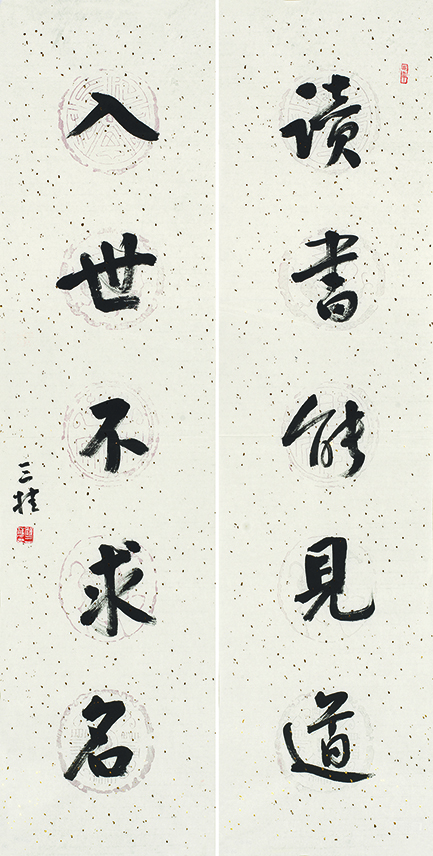 讀書能見道
入世不求名
三桂